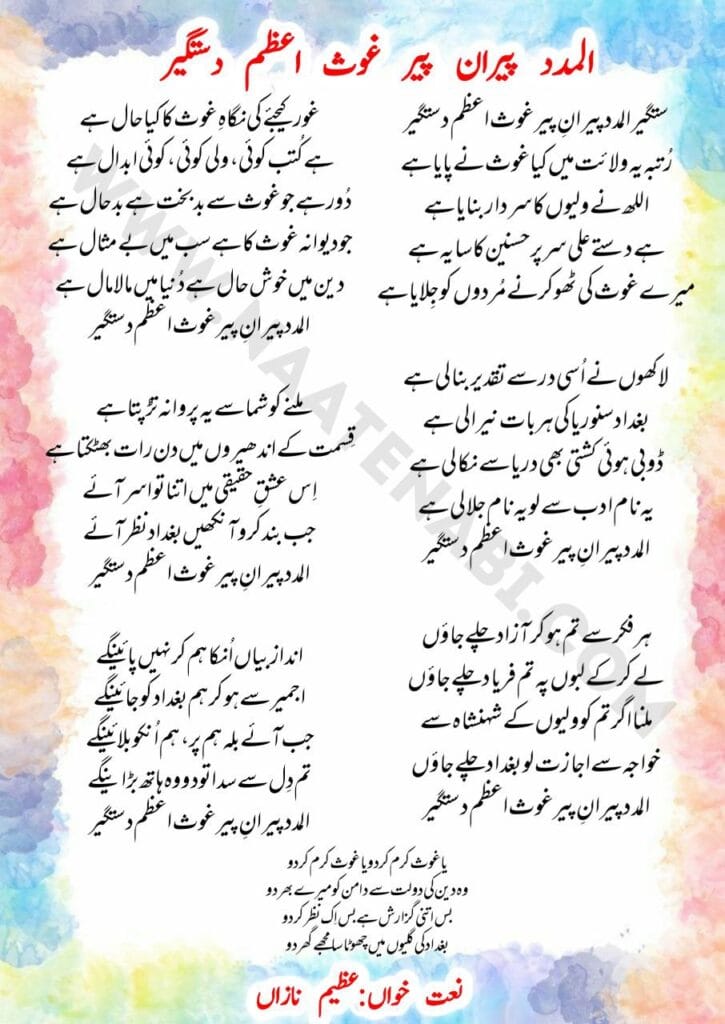 المدد پیران پیر غوث اعظم دستگیر
ستگیر المدد پیرانِ پیر غوث اعظم دستگیر
رُتبہ یہ ولائت میں کیا غوث نے پایا ہے
اللھ نے ولیوں کا سردار بنایا ہے
ہے دستے علی سر پر حسنین کا سایہ ہے
میرے غوث کی ٹھوکر نے مُردوں کو جِلایا ہے
لاکھوں نے اُسی در سے تقدیر بنالی ہے
بغداد سنوریا کی ہر بات نیرالی ہے
ڈوبی ہوئی کشتی بھی دریا سے نکالی ہے
یہ نام ادب سے لو یہ نام جلالی ہے
المدد پیرانِ پیر غوث اعظم دستگیر
ہر فکر سے تم ہو کر آزاد چلے جاؤں
لے کر کے لبوں پہ تم فریاد چلے جاؤں
ملنا اگر تم کو ولیوں کے شہنشاہ سے
خواجہ سے اجازت لو بغداد چلے جاؤں
المدد پیرانِ پیر غوث اعظم دستگیر
غور کیجئے کی نگاہِ غوث کا کیا حال ہے
ہے کُتب کوئی، ولی کوئی، کوئی ابدال ہے
دُور ہے جو غوث سے بد بخت ہے بد حال ہے
جو دیوانہ غوث کا ہے سب میں بے مثال ہے
دین میں خوش حال ہے دُنیا میں مالا مال ہے
المدد پیرانِ پیر غوث اعظم دستگیر
ملنے کو شما سے یہ پروانہ تڑپتا ہے
قِسمت کے اندھیروں میں دن رات بھٹکتا ہے
اِس عشقِ حقیقی میں اتنا تو اسر آئے
جب بند کرو آنکھیں بغداد نظر آئے
المدد پیرانِ پیر غوث اعظم دستگیر
انداز بیاں اُنکا ہم کر نہیں پائینگے
اجمیر سے ہو کر ہم بغداد کو جائینگے
جب آئے بلہ ہم پر، ہم اُنکو بلائینگے
تم دِل سے سدا تو دو وہ ہاتھ بڑاینگے
المدد پیرانِ پیر غوث اعظم دستگیر
یا غوث کرم کردو یا غوث کرم کردو
وہ دین کی دولت سے دامن کو میرے بھر دو
بس اتنی گزارش ہے بس اِک نظر کردو
بغداد کی گلیوں میں چھوٹا سا مجھے گھر دو
نعت خواں: عظیم نازاں
WWW.NAATENABI.COM